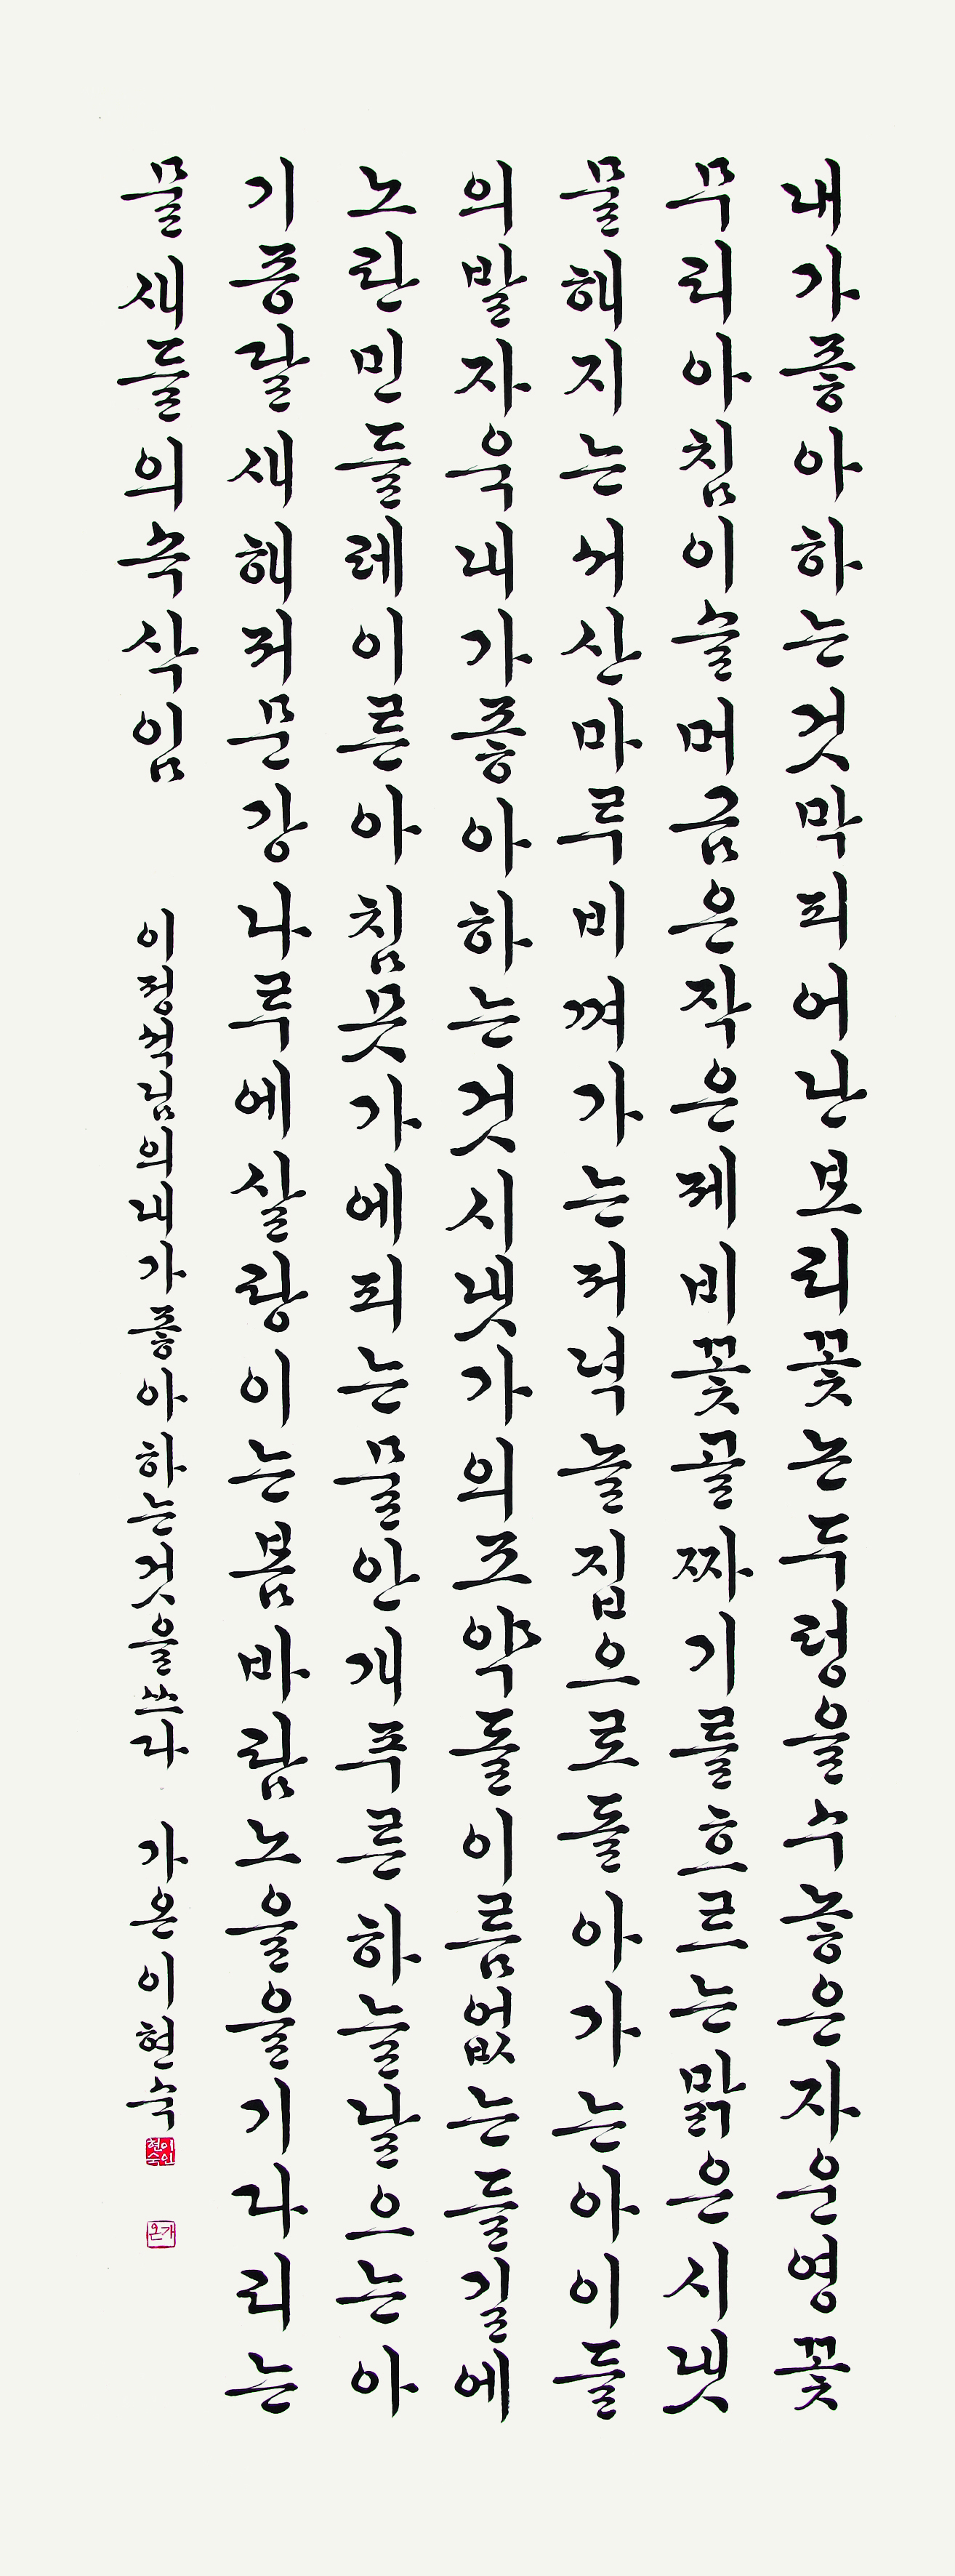 내가좋아하는것막피어난보리꽃논두렁을수놓은자운영꽃
무리아침이슬머금은작은제비꽃골짜기를흐르는맑은시냇
물해지는서산마루비껴가는저녁놀집으로돌아가는아이들
의발자욱내가좋아하는것시냇가의조약돌이름없는들길에
노란민들레이른아침뭇가에피는물안개푸른하늘날으는아
기종달새해저문강나루에살랑이는봄바람노을을기다리는
물새들의속삭임
이정석님의내가좋아하는것을쓰다 가온이현숙
이현숙인
가온